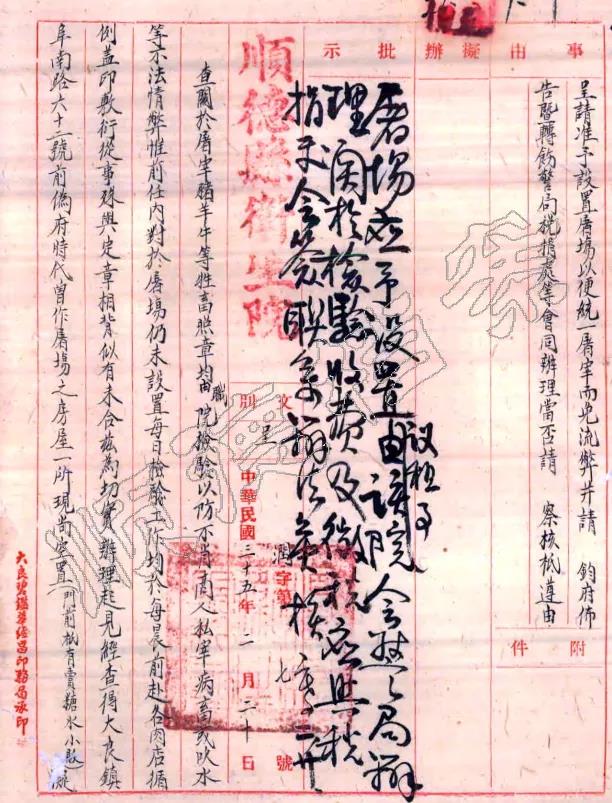 事由
擬辦
批示
附件
呈請准予設置屠場以便統一屠宰而免流弊并請 鈞府佈
告暨轉飭警局稅捐處等會同辦理當否請 察核祇遵由
屠場應予設置由該院會警局辦
理關於檢驗收費及徵稅應照稅
順德縣衛生院
文別 呈
中華民國三十五年二月二十日
潤字第七號
查關於屠宰豬羊牛等牲畜照章均由職院檢驗以防不肖商人私宰病畜或吹水
等不法情弊惟前任內對於屠場仍未設置每日檢驗工作均於每晨前赴各肉店循
例蓋印敷衍從事殊與定章相背似有未合茲為切實辦理起見經查得大良鎮
阜南路六十二號前偽府時代曾作屠場之房屋一所現尚空置門前祇有賣糖水小數擬
大良碧鑑
印務局承印